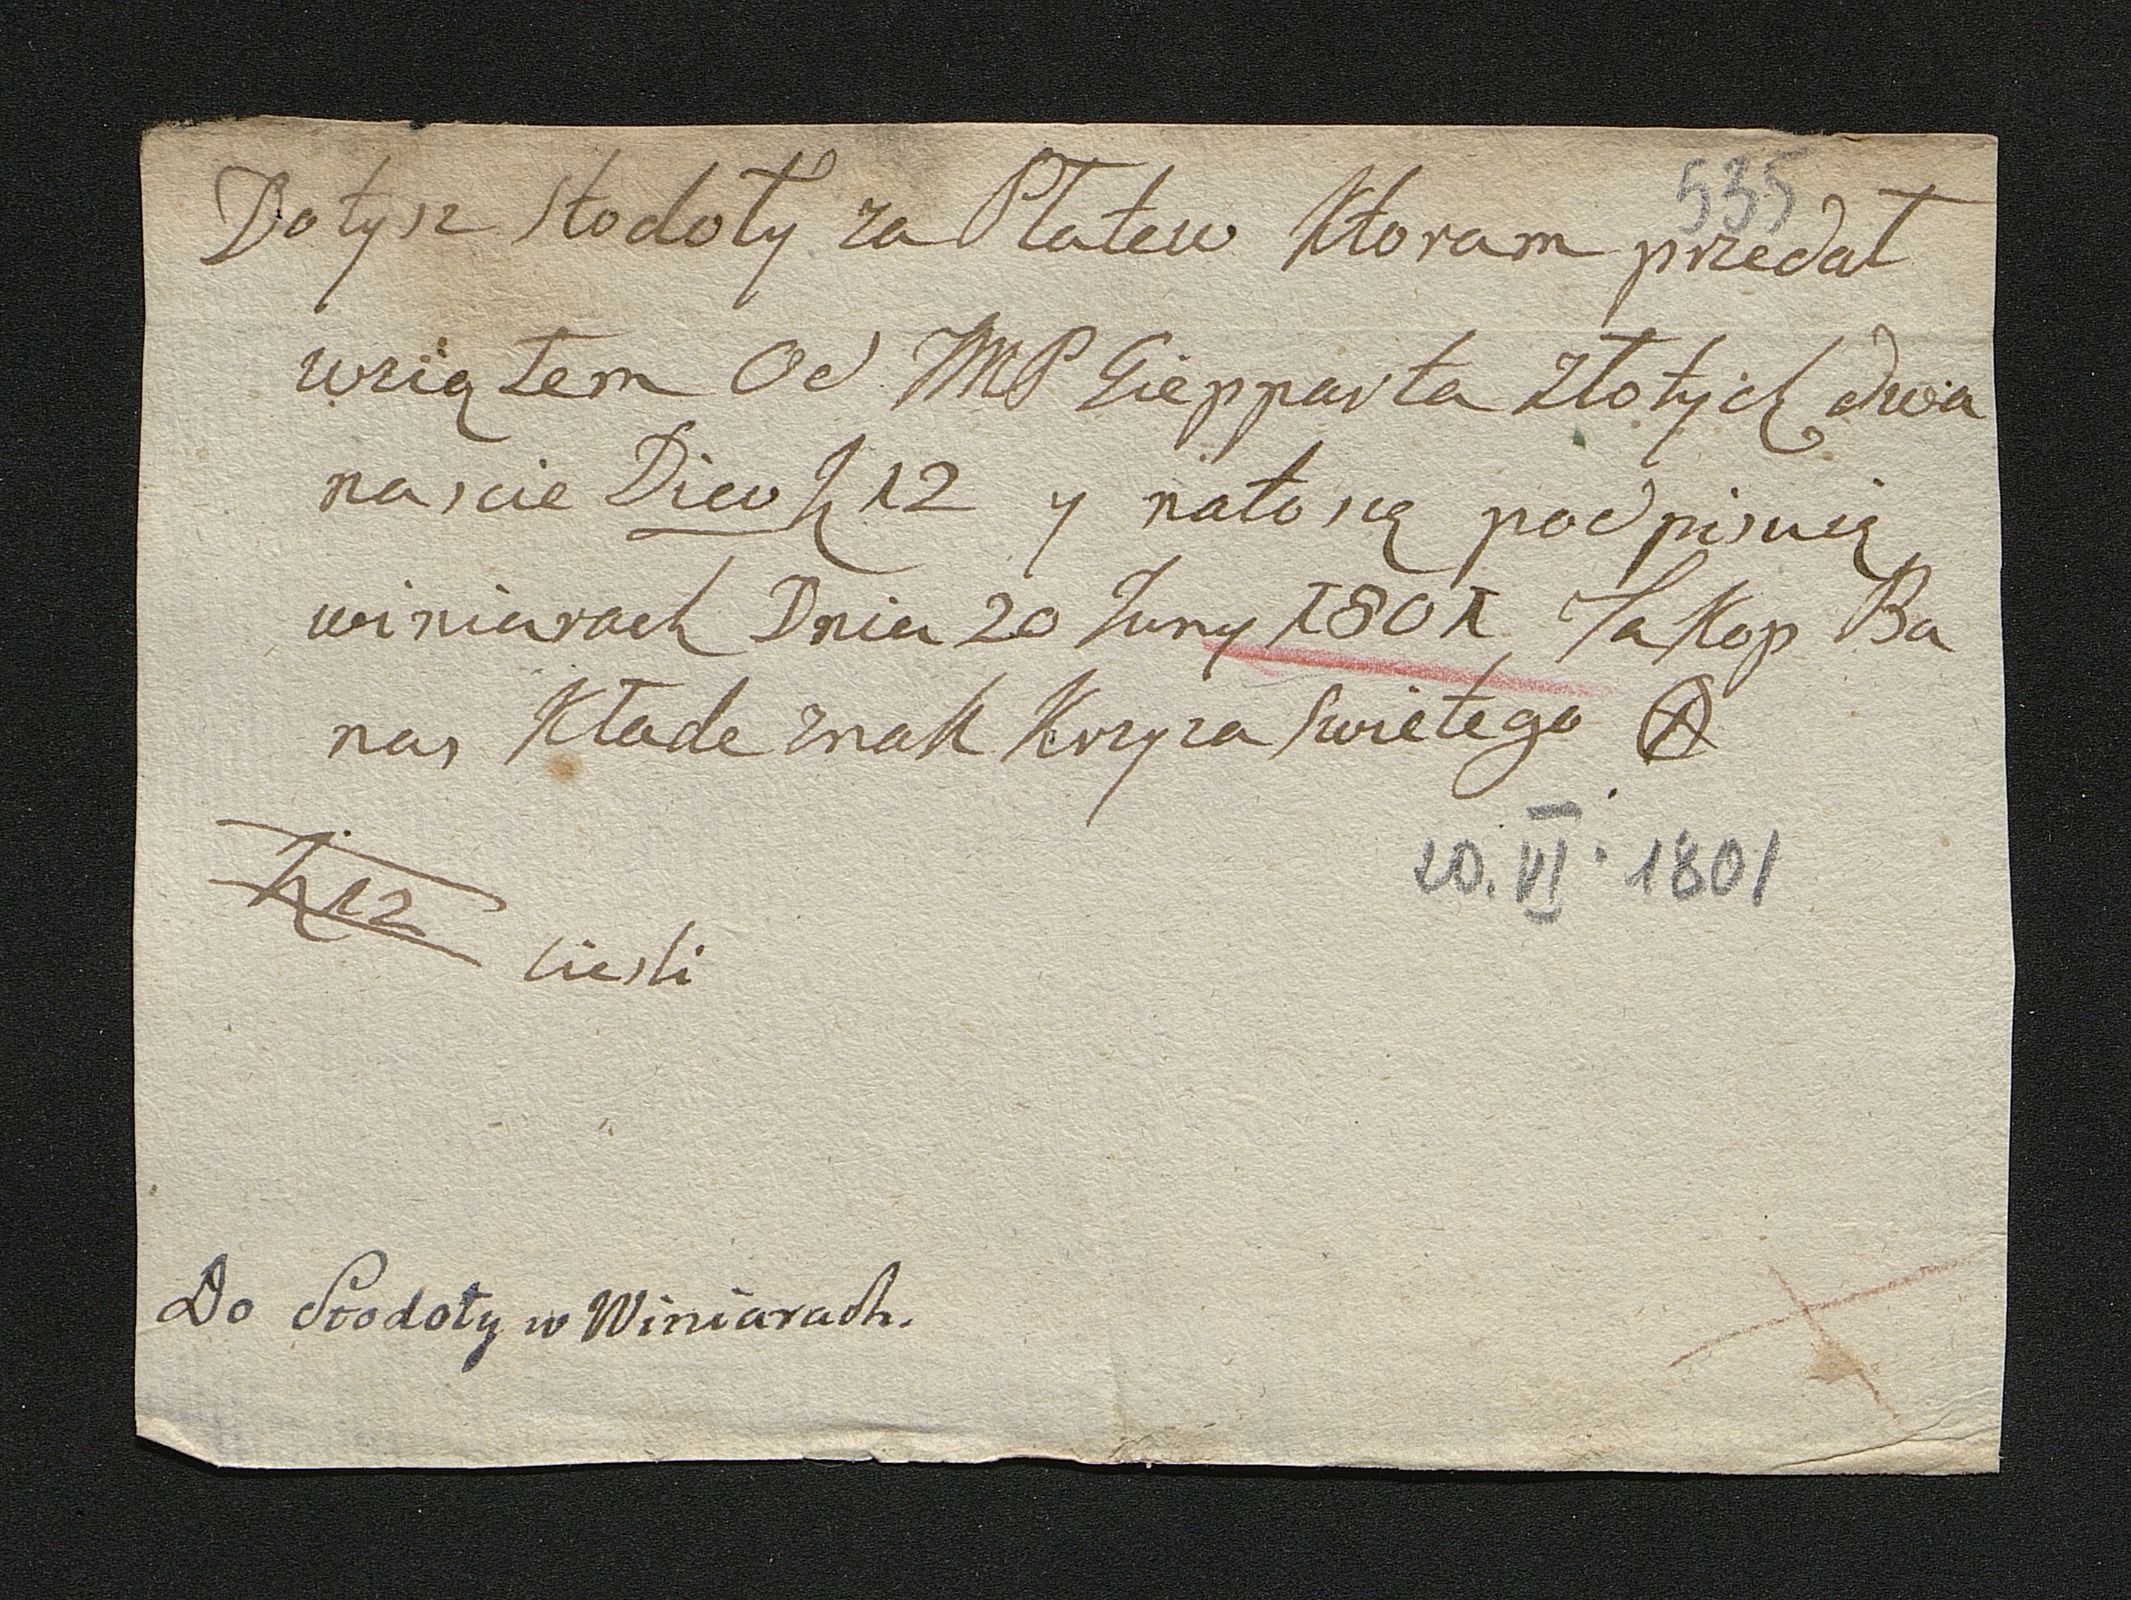 535
Do tysz stodoły za Płatew Ktoram przedał
wziąłem Od JMP Giepparta Złotych dwa
nascie Dico zł 12 y nato się podpisuię
winiarach Dnia 20 Juny 1801 Jakop Ba
nas Kłade znak Krzyza Swietego
20. VI. 1801
zł 12
ciesli
Do Stodoły w Winiarach.